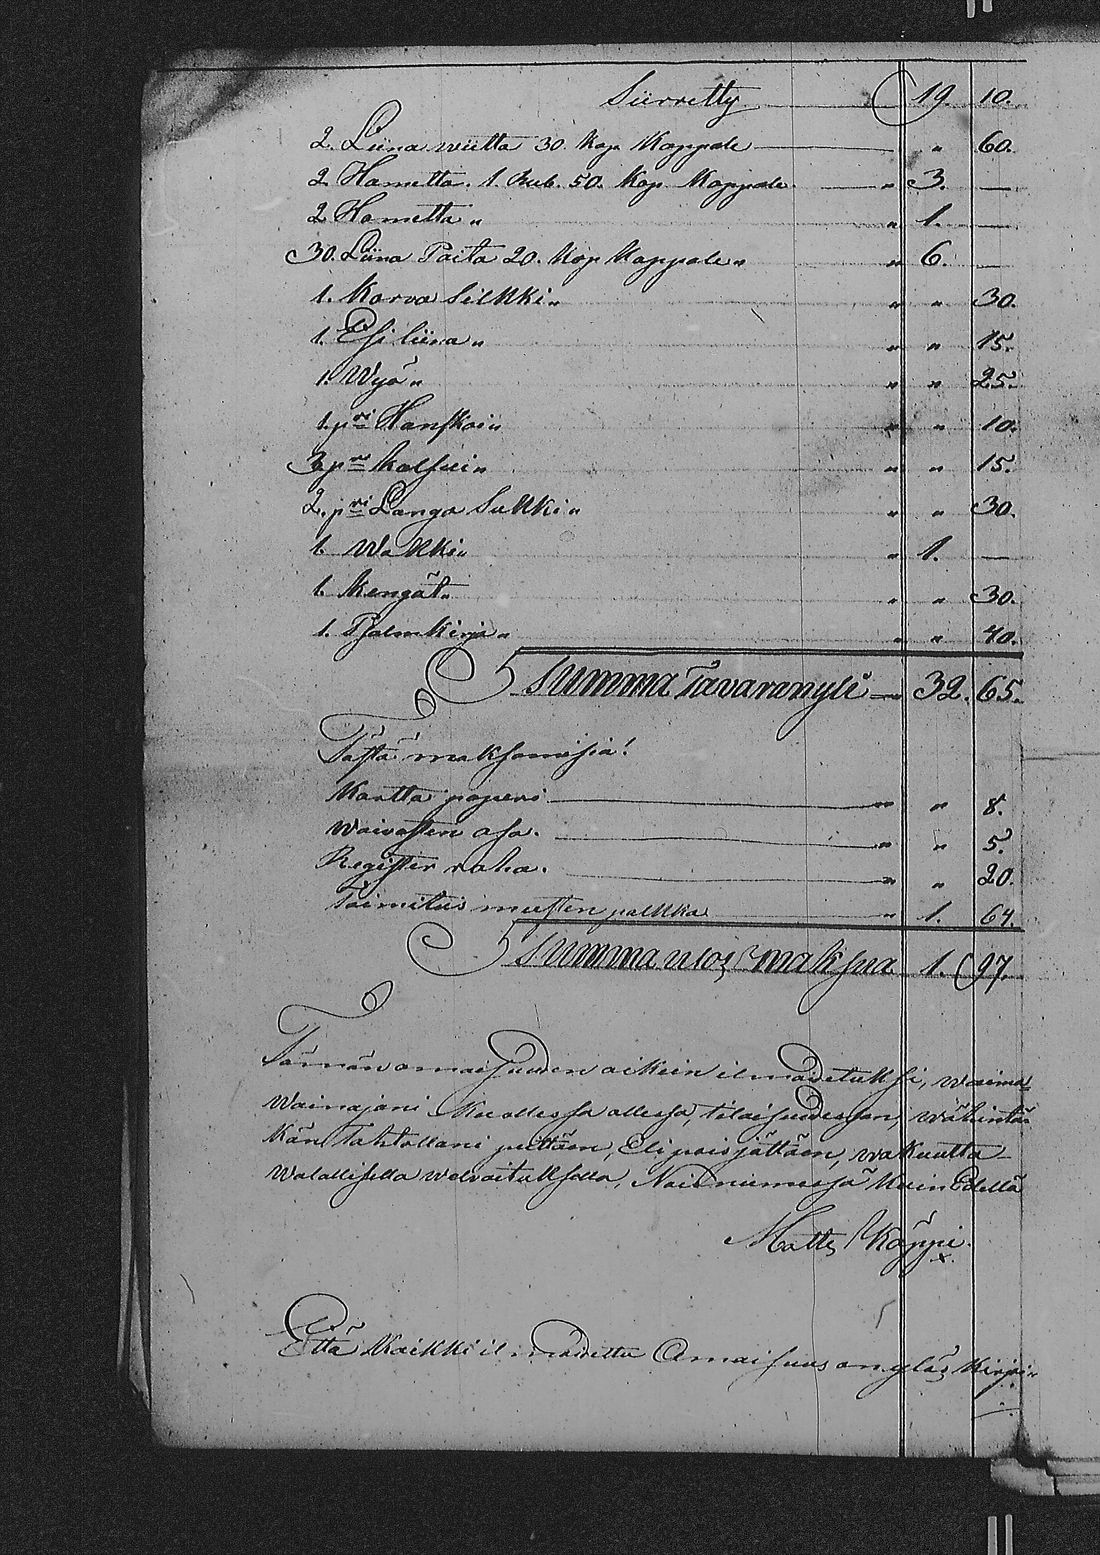 Siirretty 19. 10.
2. Liina wiitta 30. Kop. Kappale " 60.
2 Hametta. 1. Rub. 50. Kop. Kappale " 3. —
2 Hametta " " 1. —
30. Liina Paita 20. Kop Kappale " " 6. —
1. Korva Silkki " " " 30.
1. Esi liina " " " 15.
1. Wyö " " " 25.
1. pri Hanskoi " " " 10.
3 pri kalsui " " " 15.
2. pri Langa Sukki " " " 30.
1. Wakki " " 1. —
1. Kengät " " " 30.
1. Psalmkirja " " " 40.
Summa Tavaran yli " 32. 65.
Tästä maksamisia!
Kartta paperi " " 8.
Waivasten osa. " " 5.
Register raha. " " 20.
Toimitus miesten palkka " 1. 64.
Summa ulos maksua 1. 97.
Tämän omaisuuden oikein ilmoitetuksi, waimo
Wainajani kuollessa ollessa, tilaisuudessan, wähintä
kän Tahtollani peittäen, Eli pois jättäen, wakuutta
Walallisella welvoituksella, Nain nimessä kuin Edellä
Matts Käppi.
x.
Että kaikki ilmoitettu Omaisuus on ylös kirjoi